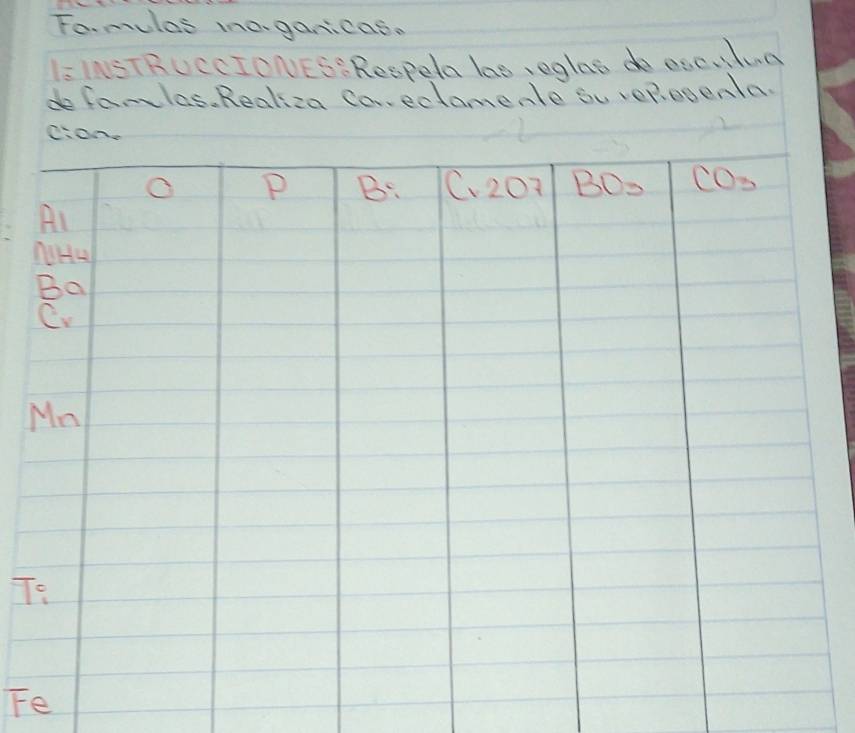 Formulas inorganicas.
1= INSTRUCCIONES: Respeta las reglas de escritura
de formulas. Realiza correctamente su representa.
cion.
O P Bi Cr2O7 BO3 CO3
Al
NH4
Ba
Cr
Mn
Ti
Fe